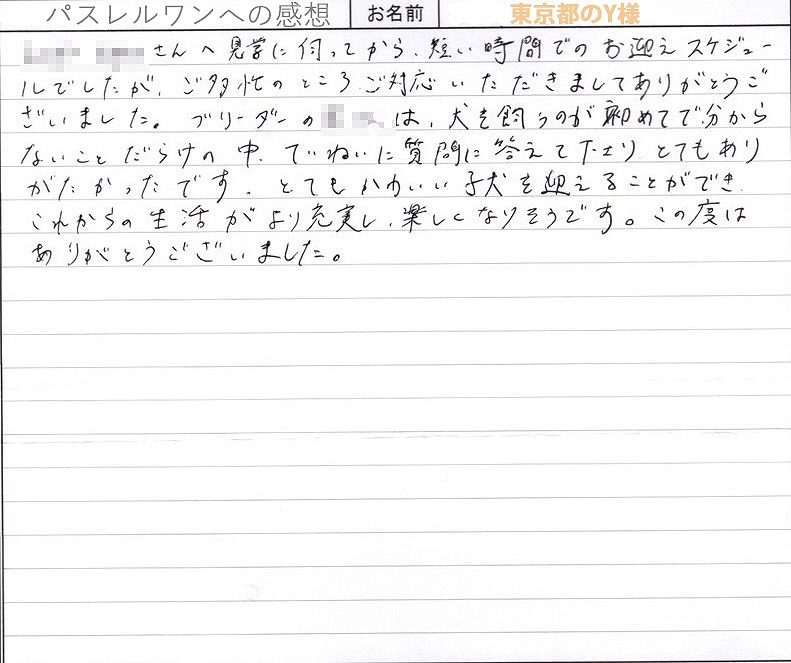 パスレルワンへの感想 お名前 東京都のY様
さんへ見学に伺ってから、短い時間でのお迎えスケジュー
ルでしたが、ご多忙のところご対応いただきましてありがとうご
ざいました。ブリーダーの は、犬を飼うのが初めてで分から
ないことだらけの中、ていねいに質問に答えて下さりとてもあり
がたかったです。とてもかわいい子犬を迎えることができ、
これからの生活がより充実し、楽しくなりそうです。この度は
ありがとうございました。